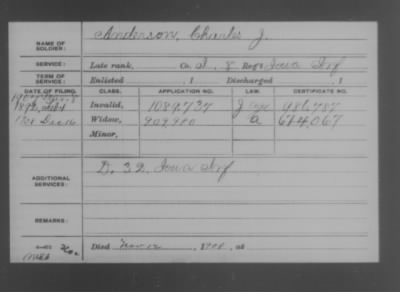 NAME OF SOLDIER: Anderson, Charles J.
SERVICE: Late rank, Co. I, 8 Regt. Iowa Inf
TERM OF SERVICE: Enlisted , 1 Discharged , 1
DATE OF FILING. CLASS. APPLICATION NO. LAW. CERTIFICATE NO.
Invalid, 1089,737 986,787
Widow, 909,980 a 674,067
Minor,
ADDITIONAL SERVICES: D. 32, Iowa Inf
REMARKS:
Died Nov 12, 1908, at